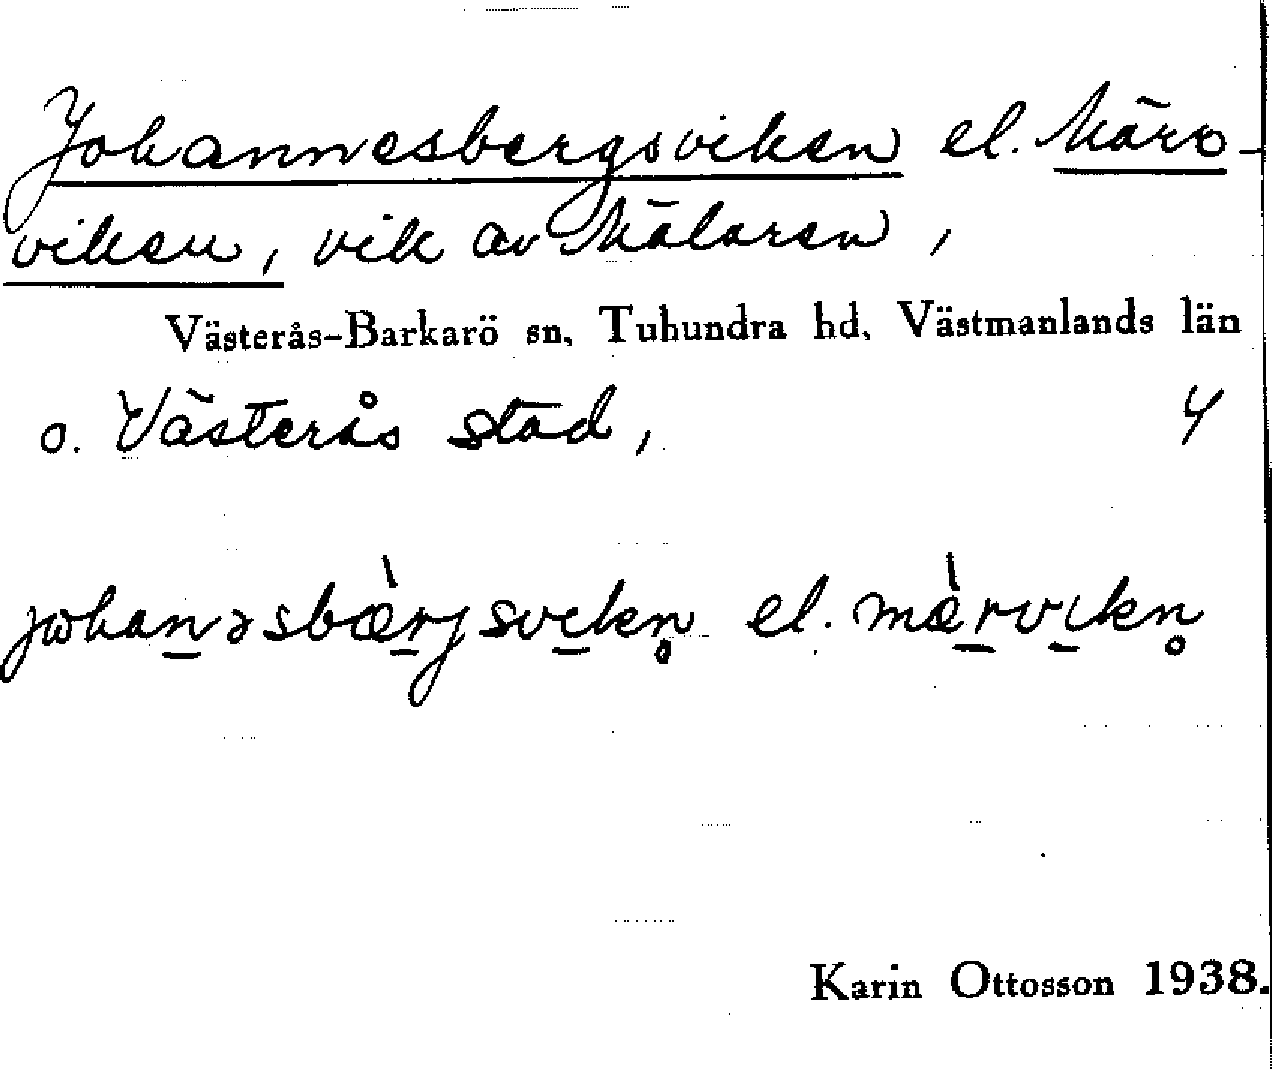 Johannesbergsviken el. Märs-
viken, vik av Mälaren,
Västerås-Barkarö sn, Tuhundra hd, Västmanlands län
o. Västerås stad, 4
johanəsbæ̀rjsvikn̥ el. mæ̀rvikn̥
Karin Ottosson 1938.